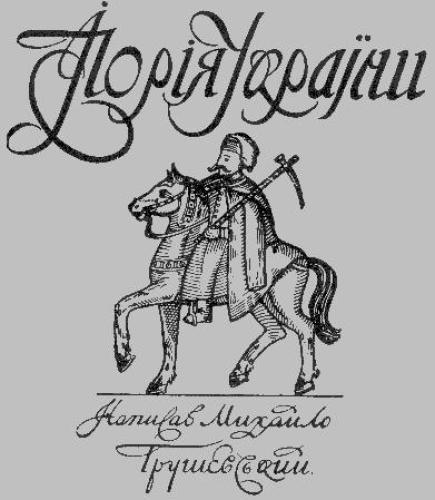 Історія України
Написав Михайло
Грушевський.